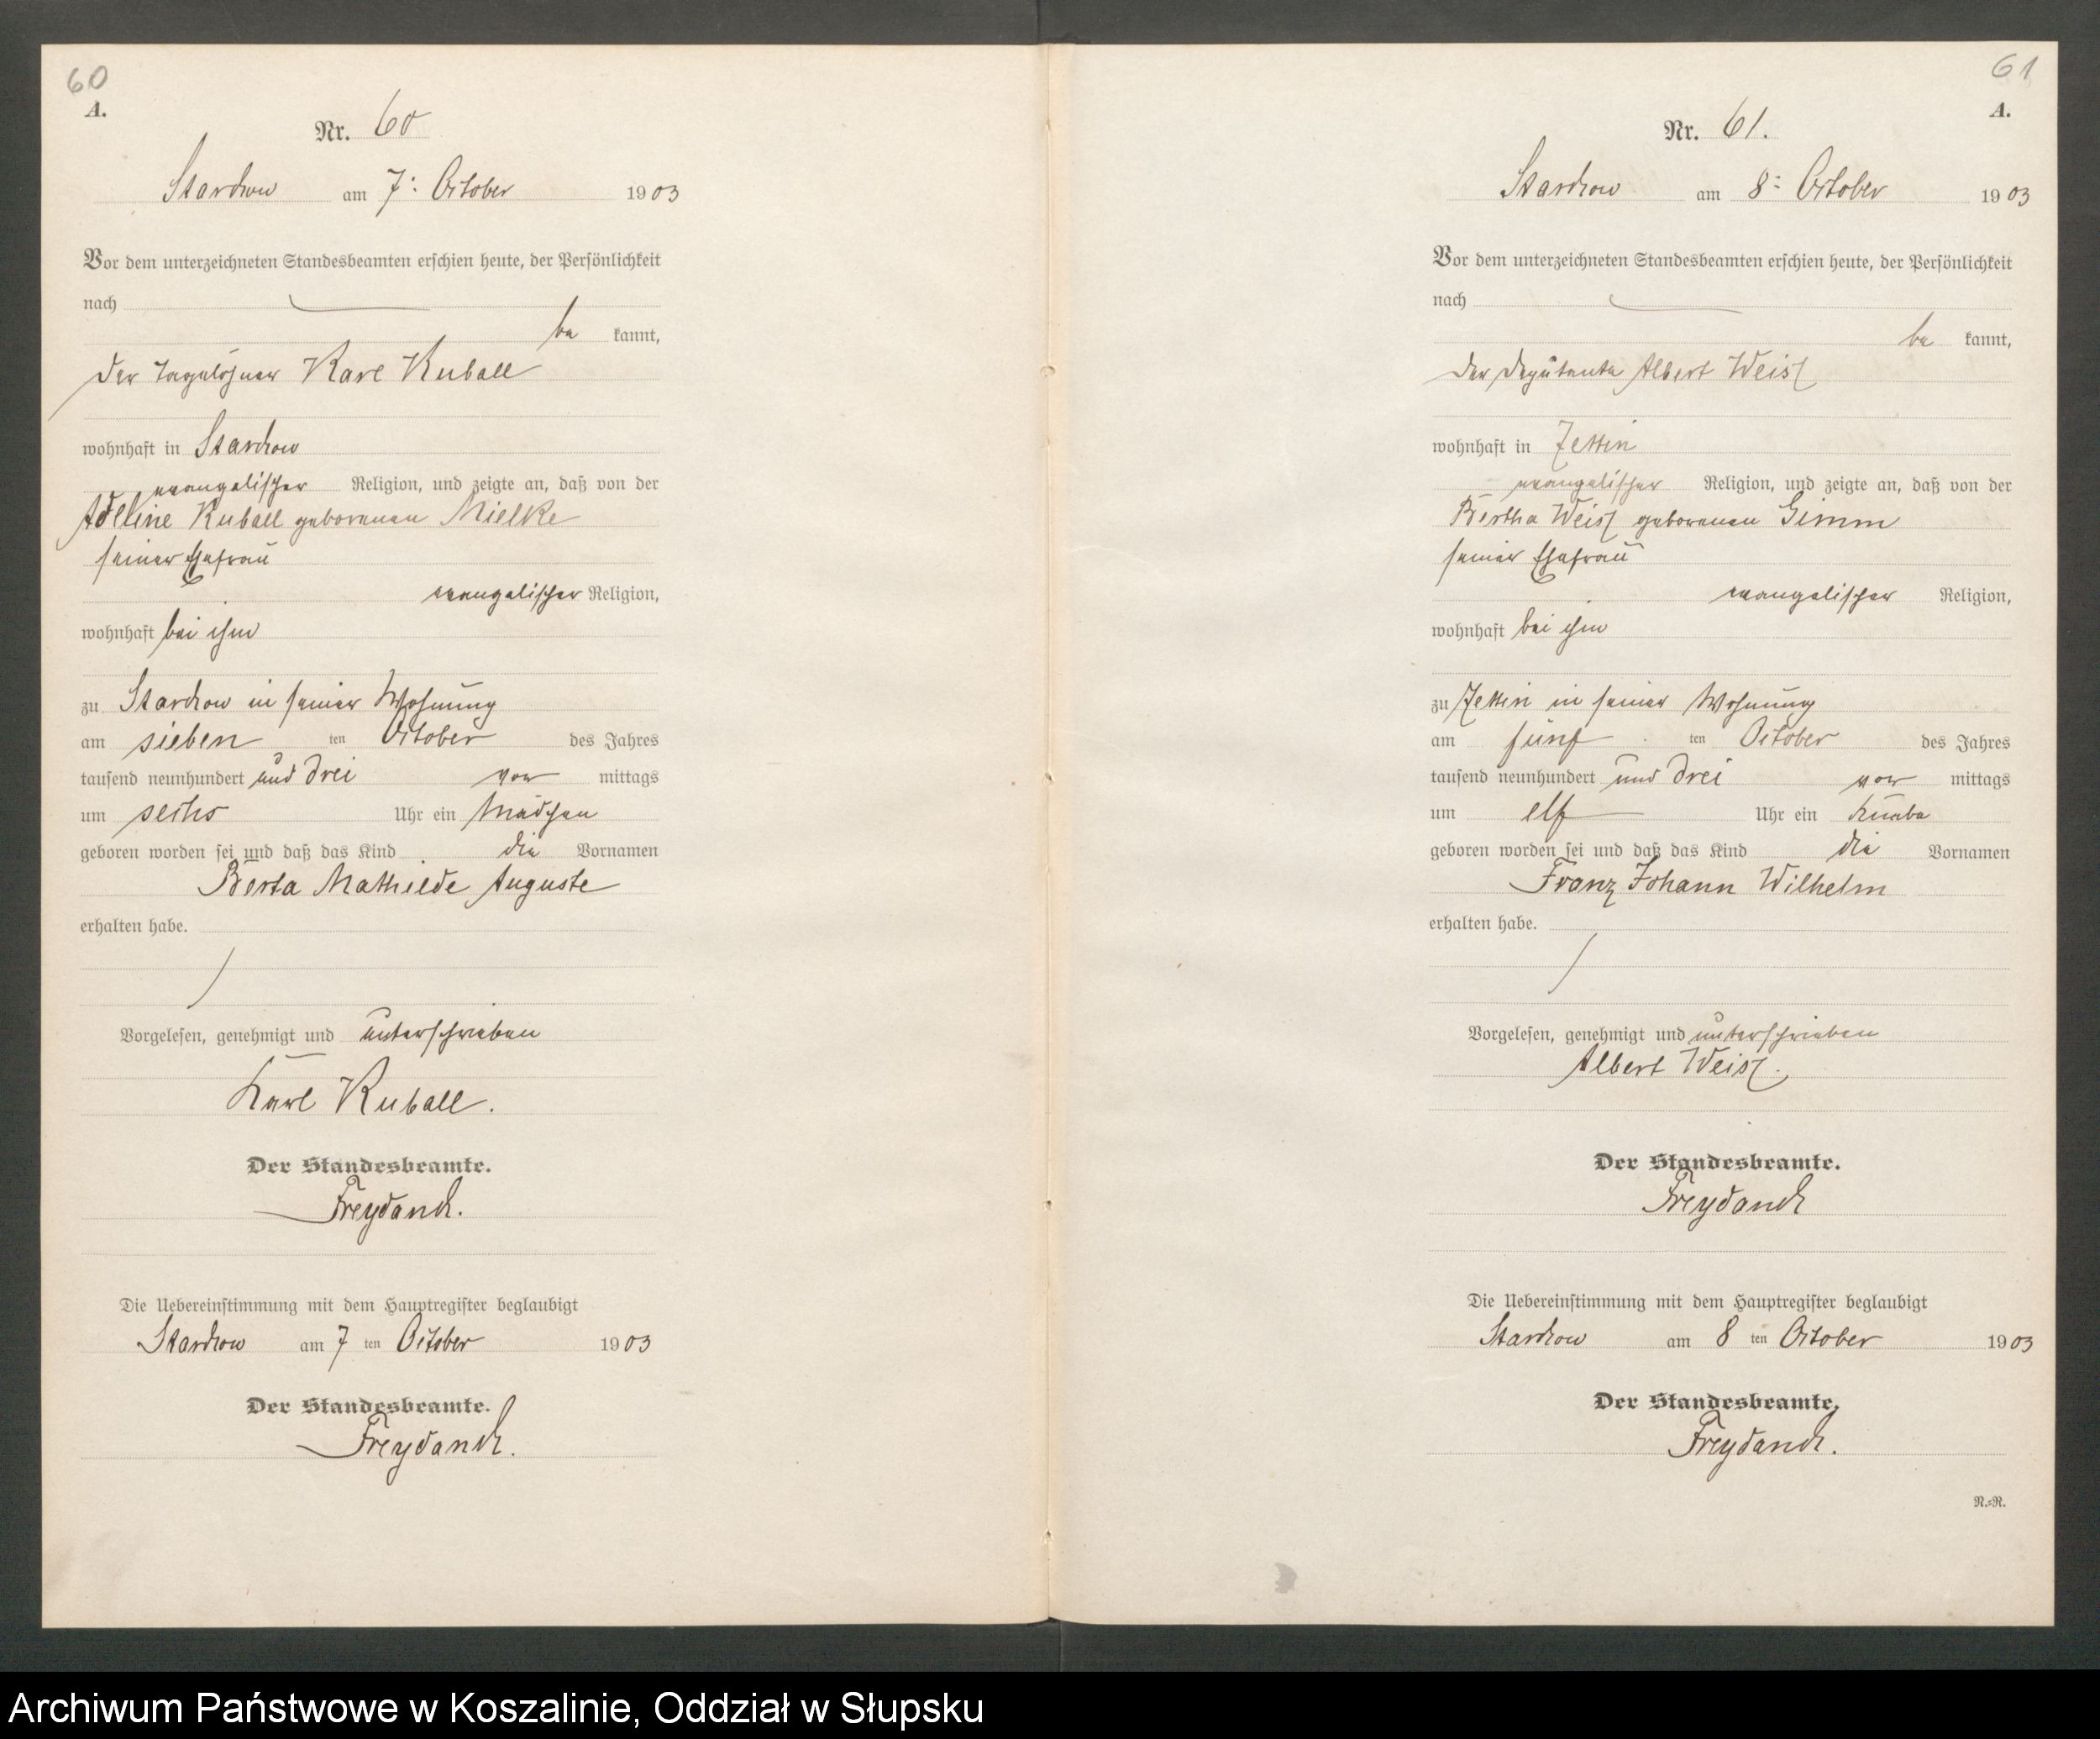 60
A.
Nr. 60
Starckow am 7: October 1903
Vor dem unterzeichneten Standesbeamten erschien heute, der Persönlichkeit
nach
be kannt,
der Tagelöhner Karl Kuball
wohnhaft in Starckow
evangelischer Religion, und zeigte an, daß von der
Adeline Kuball geborenen Mielke
seiner Ehefrau
evangelischer Religion,
wohnhaft bei ihm
zu Starckow in seiner Wohnung
am sieben ten October des Jahres
tausend neunhundert und drei vor mittags
um sechs Uhr ein Mädchen
geboren worden sei und daß das Kind die Vornamen
Berta Mathilde Auguste
erhalten habe.
Vorgelesen, genehmigt und unterschrieben
Karl Kuball.
Der Standesbeamte.
Freydanck.
Die Uebereinstimmung mit dem Hauptregister beglaubigt
Starckow am 7 ten October 1903
Der Standesbeamte.
Freydanck.
61
A.
Nr. 61.
Starckow am 8: October 1903
Vor dem unterzeichneten Standesbeamten erschien heute, der Persönlichkeit
nach
be kannt,
der Deputante Albert Weiß
wohnhaft in Zettin
evangelischer Religion, und zeigte an, daß von der
Bertha Weiß geborenen Gimm
seiner Ehefrau
evangelischer Religion,
wohnhaft bei ihm
zu Zettin in seiner Wohnung
am fünf ten October des Jahres
tausend neunhundert und drei vor mittags
um elf Uhr ein Knabe
geboren worden sei und daß das Kind die Vornamen
Franz Johann Wilhelm
erhalten habe.
Vorgelesen, genehmigt und unterschrieben
Albert Weiß.
Der Standesbeamte.
Freydanck
Die Uebereinstimmung mit dem Hauptregister beglaubigt
Starckow am 8 ten October 1903
Der Standesbeamte.
Freydanck.
N.=R.
Archiwum Państwowe w Koszalinie, Oddział w Słupsku